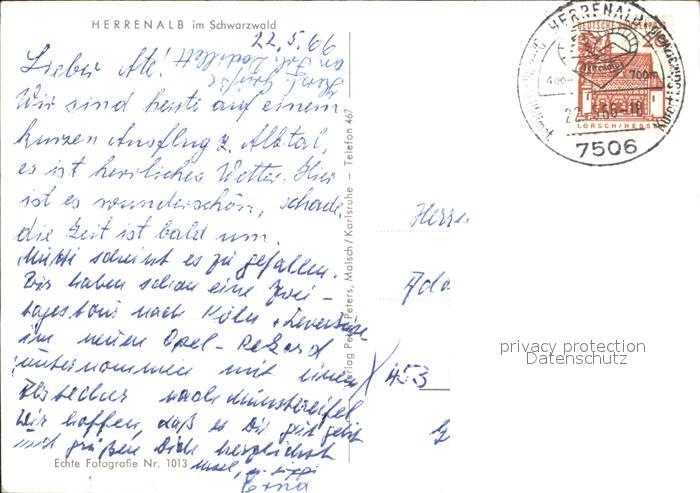 HERRENALB im Schwarzwald
22.5.66
Herzl. Grüße
an Frl.
Lieber Ate!
Wir sind heute auf einem
kurzen Ausflug z. Albtal,
es ist herrliches Wetter. Hier
ist es wunderschön, schade,
die Zeit ist bald um.
scheint es zu gefallen.
Wir haben schon eine Zwei-
tagestour nach Köln
im neuen Opel-Rekord
unternommen mit einem
Abstecher nach Münstereifel
Wir hoffen, daß es Dir gut geht
und grüßen Dich herzlichst
Echte Fotografie Nr. 1013
Erna
Verlag Peter Peters, Malsch/Karlsruhe – Telefon 467
HERRENALB
DEUTSCHE BUNDESPOST
400-
700m
22.5.66-18
LORSCH/HESSEN
7506
Herrn
Ado
453
privacy protection
Datenschutz